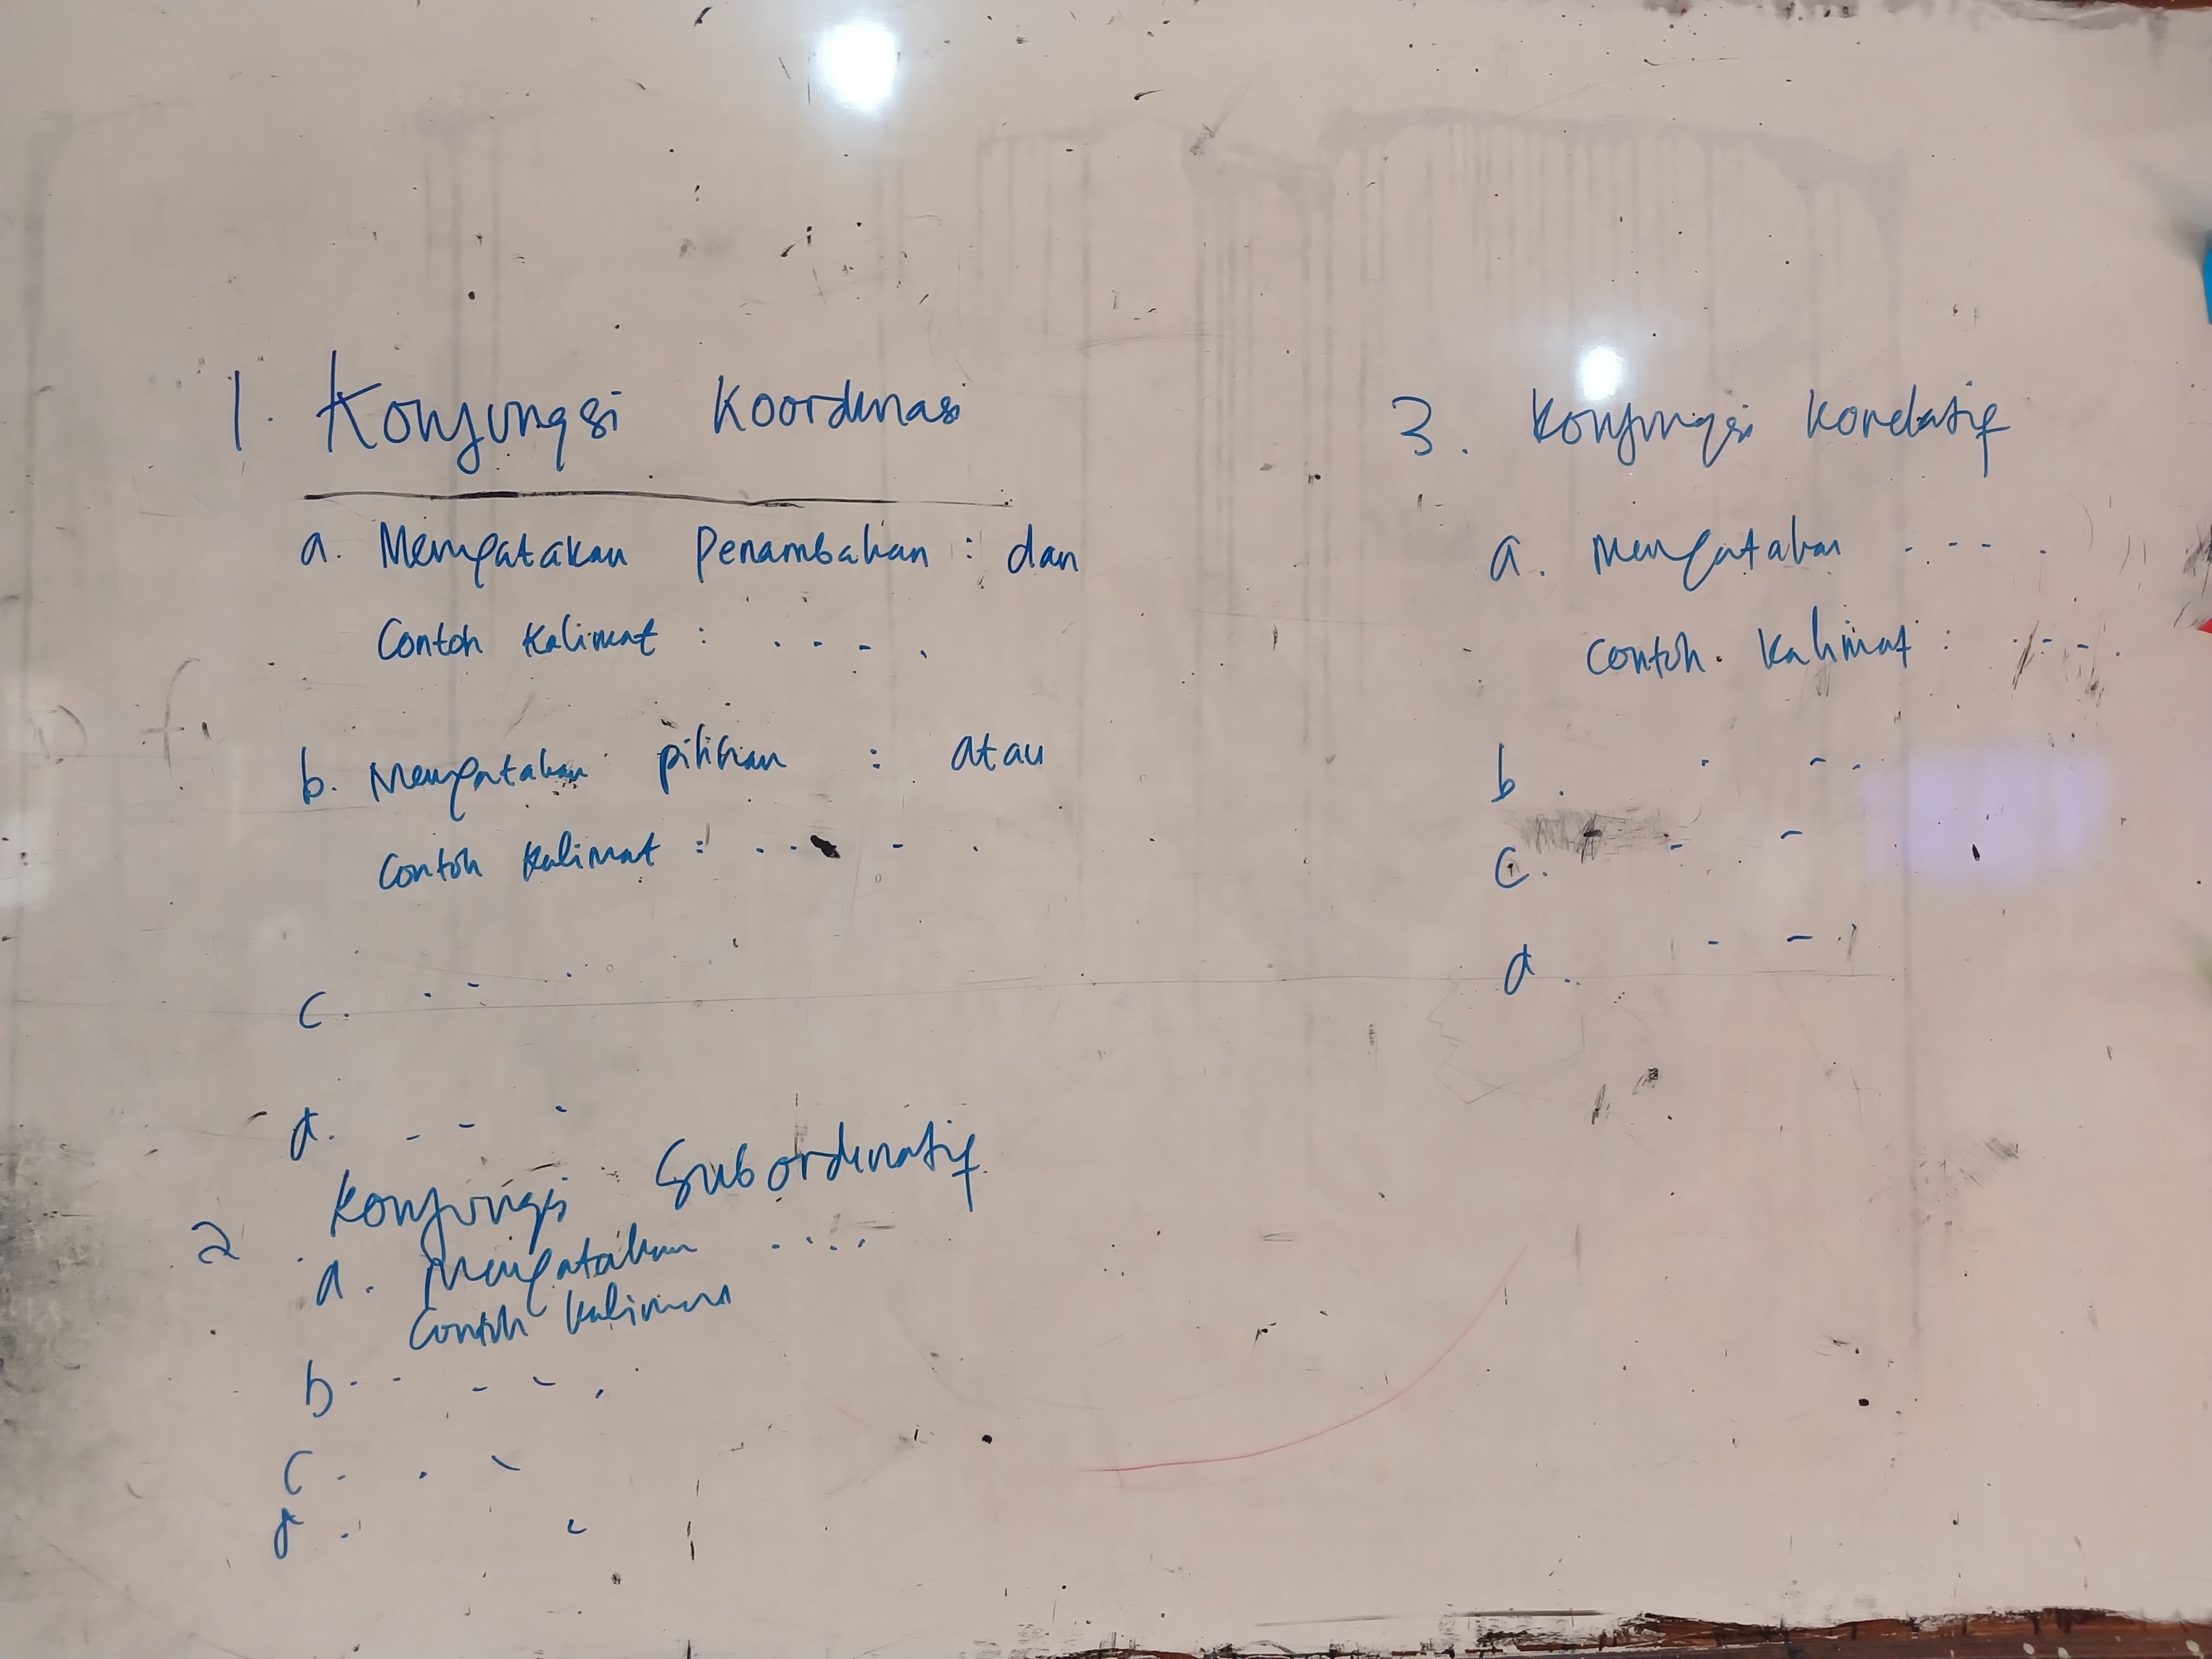 1. Konjungsi Koordinasi
a. Menyatakan Penambahan : dan
Contoh Kalimat : ....
b. Menyatakan pilihan : atau
Contoh Kalimat : ....
c. ...
d. ...
2. Konjungsi Subordinatif
a. Menyatakan ....
Contoh Kalimat
b. ....
c. ..
d. .
3. Konjungsi Korelatif
a. Menyatakan ....
Contoh Kalimat : ....
b. ...
c. ..
d. ..